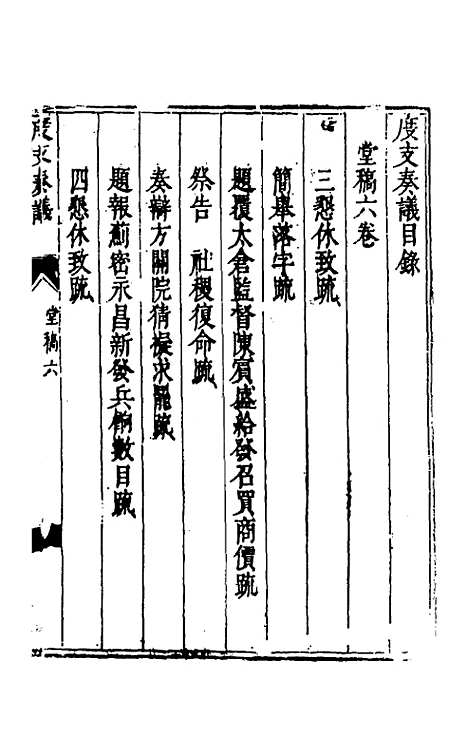 度支奏議目錄
堂稿六卷
三懇休致疏
簡舉落字疏
題覆太倉監督陳賓盛給發召買商價疏
祭告　社稷復命疏
奏辯方開院猜疑求罷疏
題報薊密永昌新發兵餉數目疏
四懇休致疏
度支奏議
堂稿六